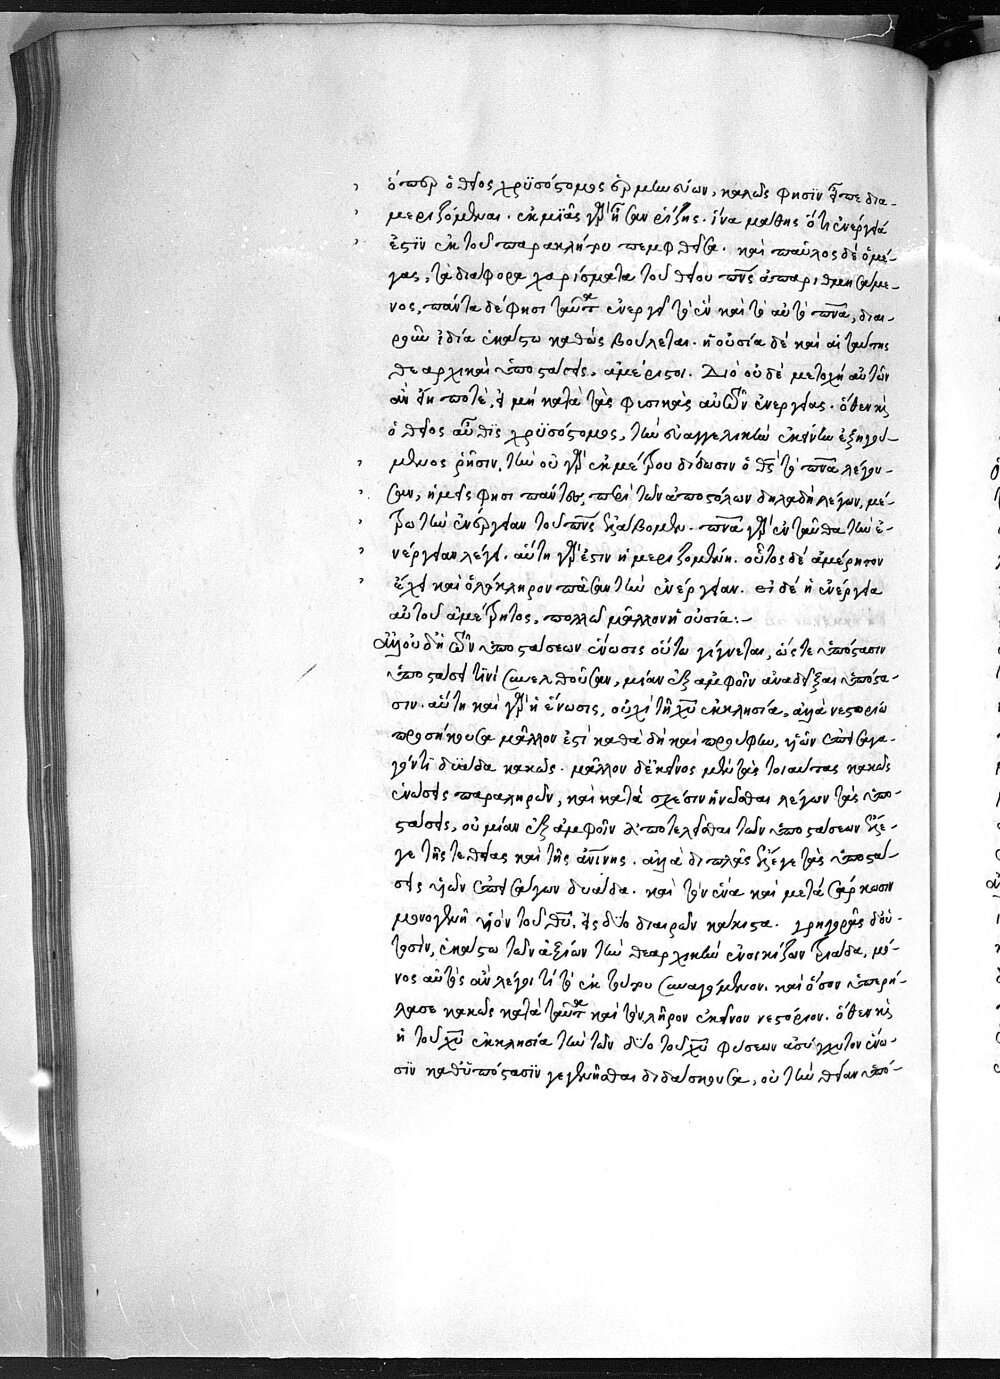 ὅπερ ὁ θεῖος χρυσόστομος ἑρμηνεύων, καλῶς φησὶν εἶπε δια-
μεριζόμεναι. ἐκ μιᾶς γὰρ ἦσαν ῥίζης. ἵνα μάθῃς ὅτι ἐνέργειά
ἐστιν ἐκ τοῦ παρακλήτου πεμφθεῖσα. καὶ παῦλος δὲ ὁ μέ-
γας, τὰ διάφορα χαρίσματα τοῦ θείου πνς ἀπαριθμησάμε-
νος, πάντα δέ φησι ταῦτα ἐνεργεῖ τὸ ἓν καὶ τὸ αὐτὸ πνα, διαι-
ροῦν ἰδία ἑκάστω καθὼς βούλεται. ἡ οὐσία δὲ καὶ αἱ ταύτης
θεαρχικαὶ ὑποστάσεις, ἀμέριστοι. Διὸ οὐδὲ μετοχὴ αὐτῶν
ἂν εἴη ποτὲ, εἰ μὴ κατὰ τὰς φυσικὰς αὐτῶν ἐνεργείας. ὅθεν καὶ
ὁ θεῖος αὖθις χρυσόστομος, τὴν εὐαγγελικὴν ἐκείνην ἐξηγού-
μενος ῥῆσιν, τὴν οὐ γὰρ ἐκ μέτρου δίδωσιν ὁ θς τὸ πνα λέγου-
σαν, ἡμεῖς φησι πάντες, περὶ τῶν ἀποστόλων δηλαδὴ λέγων, μέ-
τρω τὴν ἐνέργειαν τοῦ πνς ἐλάβομεν. πνα γὰρ ἐνταῦθα τὴν ἐ-
νέργειαν λέγει. αὕτη γάρ ἐστιν ἡ μεριζομένη. οὗτος δὲ ἀμέρητον
ἔχει καὶ ὁλόκληρον πᾶσαν τὴν ἐνέργειαν. εἰ δὲ ἡ ἐνέργεια
αὐτοῦ ἀμέτρητος, πολλῶ μᾶλλον ἡ οὐσία:-
Ἀλλ' οὐδὴ τῶν ὑποστάσεων ἕνωσις οὕτω γίγνεται, ὥστε ὑπόστασιν
ὑποστάσει τινὶ συνελθοῦσαν, μίαν ἐξ ἀμφοῖν ἀναδεῖξαι ὑπόστα-
σιν. αὕτη καὶ γὰρ ἡ ἕνωσις, οὐχὶ τῆ χυ ἐκκλησία, ἀλλὰ νεστορίω
προσήκουσα μᾶλλον ἐστὶ καθὰ δὴ καὶ προύφην, υἱῶν ἐπεισαγα-
γόντι δυάδα κακῶς. μᾶλλον δὲ κεῖνος μὲν τὰς τοιαύτας κακῶς
ἑνώσεις παραληρῶν, καὶ κατὰ σχέσιν ἡνῶσθαι λέγων τὰς ὑπο-
στάσεις, οὐ μίαν ἐξ ἀμφοῖν ἀποτελεῖσθαι τῶν ὑποστάσεων ἔλε-
γε τῆς τε θείας καὶ τῆς ἀνίνης. ἀλλὰ διπλᾶς ἔλεγε τὰς ὑποστά-
σεις υἱῶν ἐπεισάγων δυάδα. καὶ τὸν ἕνα καὶ μετὰ σάρκωσιν
μονογενῆ υἱὸν τοῦ θυ, εἰς δύο διαιρῶν κάκιστα. γρηγορᾶς δ' οὑ-
τοσὶν, ἑκάστω τῶν ἀξίων τὴν θεαρχικὴν ἐνοικίζων τριάδα, μό-
νος αὐτὸς ἂν λέγοι τί τὸ ἐκ τούτου συναγόμενον. καὶ ὅσον ὑπερή-
λασε κακῶς κατὰ ταῦτα καὶ τὸν λῆρον ἐκεῖνον νεστόριον. ὅθεν καὶ
ἡ τοῦ χυ ἐκκλησία τὴν τῶν δύο τοῦ χυ φύσεων ἀσύγχυτον ἕνω-
σιν καθ' ὑπόστασιν γεγενῆσθαι διδάσκουσα, οὐ τὴν θείαν ὑπό-